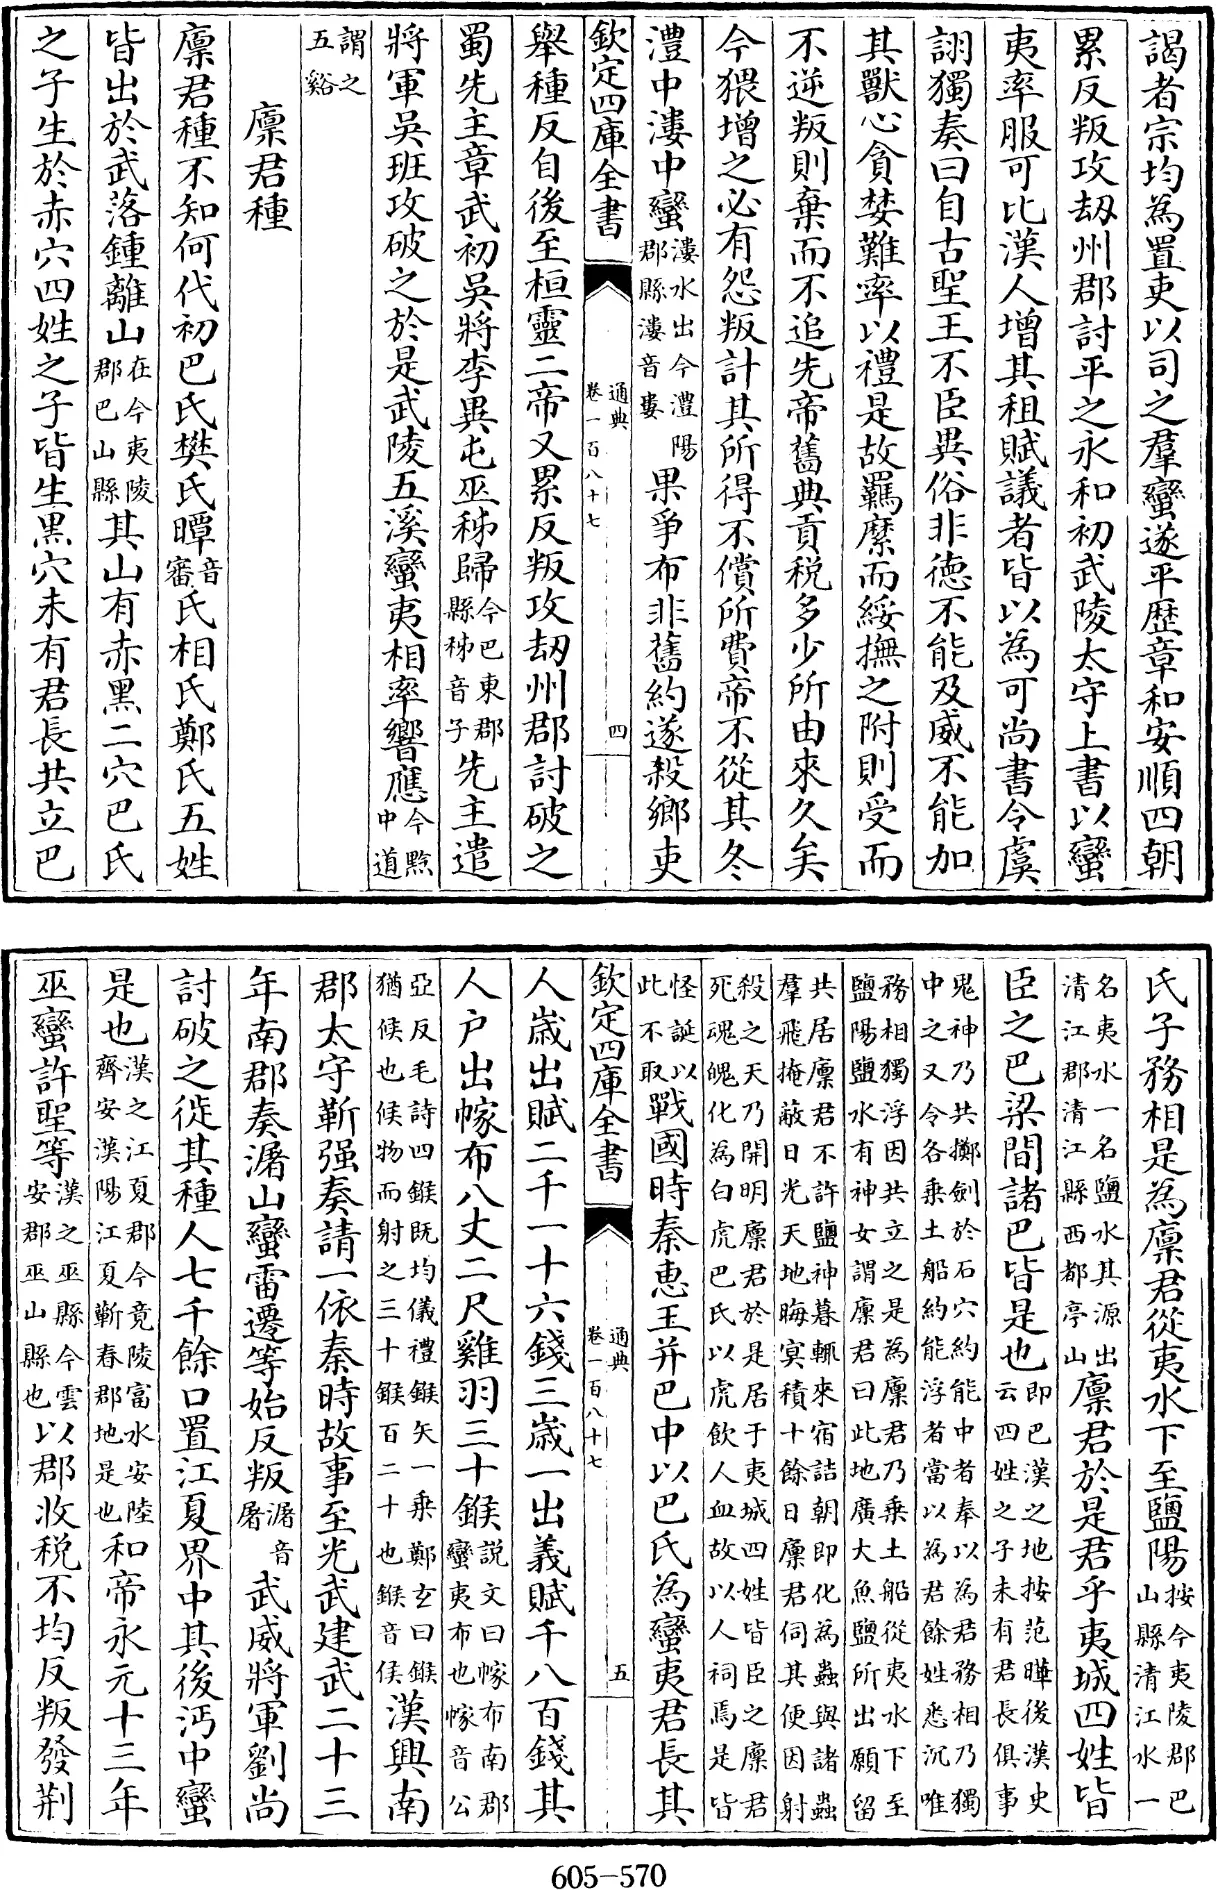 謁者宗均為置吏以司之羣蠻遂平歴章和安順四朝
累反叛攻刼州郡討平之永和初武陵太守上書以蠻
夷率服可比漢人增其租賦議者皆以為可尚書令虞
詡獨奏曰自古聖王不臣異俗非徳不能及威不能加
其獸心貪婪難率以禮是故羈縻而綏撫之附則受而
不逆叛則棄而不追先帝舊典貢税多少所由來久矣
今猥增之必有怨叛計其所得不償所費帝不從其冬
澧中漊中蠻漊水出今澧陽郡縣漊音婁果爭布非舊約遂殺鄉吏
欽定四庫全書 通典 卷一百八十七 四
舉種反自後至桓靈二帝又累反叛攻刼州郡討破之
蜀先主章武初吳將李異屯巫秭歸今巴東郡縣秭音子先主遣
將軍吳班攻破之於是武陵五溪蠻夷相率響應今黔中道
謂之五谿
廪君種
廪君種不知何代初巴氏樊氏瞫音審氏相氏鄭氏五姓
皆出於武落鍾離山在今夷陵郡巴山縣其山有赤黑二穴巴氏
之子生於赤穴四姓之子皆生黑穴未有君長共立巴
氏子務相是為廪君從夷水下至鹽陽按今夷陵郡巴山縣清江水一
名夷水一名鹽水其源出清江郡清江縣西都亭山廪君於是君乎夷城四姓皆
臣之巴梁間諸巴皆是也即巴漢之地按范曄後漢史云四姓之子未有君長俱事
鬼神乃共擲劍於石穴約能中者奉以為君務相乃獨中之又令各乗土船約能浮者當以為君餘姓悉沉唯
務相獨浮因共立之是為廪君乃乗土船從夷水下至鹽陽鹽水有神女謂廪君曰此地廣大魚鹽所出願留
共居廪君不許鹽神暮輒來宿詰朝即化為蟲與諸蟲羣飛掩蔽日光天地晦冥積十餘日廪君伺其便因射
殺之天乃開明廪君於是居于夷城四姓皆臣之廪君死魂魄化為白虎巴氏以虎飲人血故以人祠焉是皆
怪誕以此不取戰國時秦惠王并巴中以巴氏為蠻夷君長其
欽定四庫全書 通典 卷一百八十七 五
人歳出賦二千一十六錢三歳一出義賦千八百錢其
人户出幏布八丈二尺雞羽三十鍭說文曰幏布南郡蠻夷布也幏音公
亞反毛詩四鍭既均儀禮鍭矢一乗鄭玄曰鍭猶候也候物而射之三十鍭百二十也鍭音侯漢興南
郡太守靳强奏請一依秦時故事至光武建武二十三
年南郡奏潳山蠻雷遷等始反叛潳音屠武威將軍劉尚
討破之徙其種人七千餘口置江夏界中其後沔中蠻
是也漢之江夏郡今竟陵富水安陸齊安漢陽江夏蘄春郡地是也和帝永元十三年
巫蠻許聖等漢之巫縣今雲安郡巫山縣也以郡收税不均反叛發荆
605-570